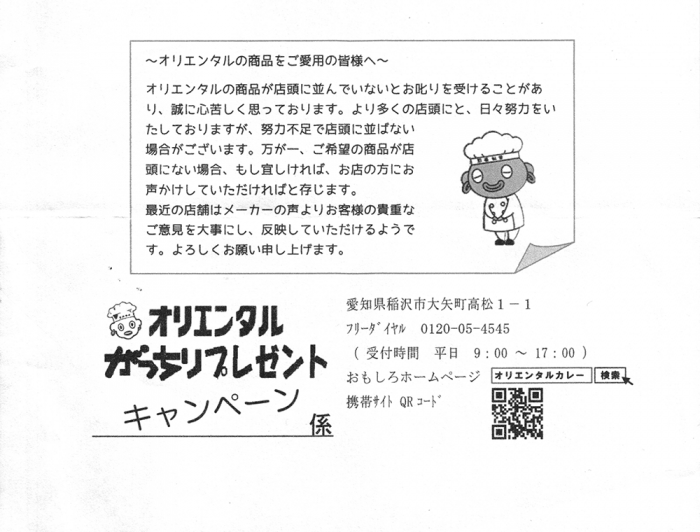 ～オリエンタルの商品をご愛用の皆様へ～
オリエンタルの商品が店頭に並んでいないとお叱りを受けることがあ
り、誠に心苦しく思っております。より多くの店頭にと、日々努力をい
たしておりますが、努力不足で店頭に並ばない
場合がございます。万が一、ご希望の商品が店
頭にない場合、もし宜しければ、お店の方にお
声かけしていただければと存じます。
最近の店舗はメーカーの声よりお客様の貴重な
ご意見を大事にし、反映していただけるようで
す。よろしくお願い申し上げます。
オリエンタル
がっちりプレゼント
キャンペーン
係
愛知県稲沢市大矢町高松１－１
ﾌﾘｰﾀﾞｲﾔﾙ 0120-05-4545
（ 受付時間 平日 9：00 ～ 17：00 ）
おもしろホームページ オリエンタルカレー 検索
携帯サイト QRｺｰﾄﾞ